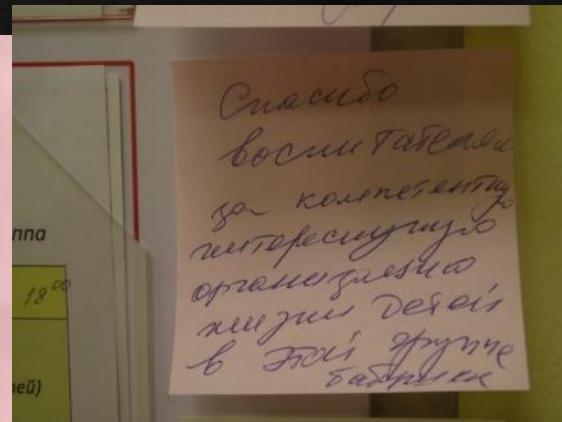 Спасибо
воспитателям
за компетентную
интересную
организацию
жизни детей
в этой группе
бабушки
ппа
18⁰⁰
ей)